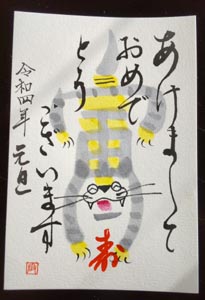 あけまして
おめで
とう
ございます
令和四年
元旦
寿